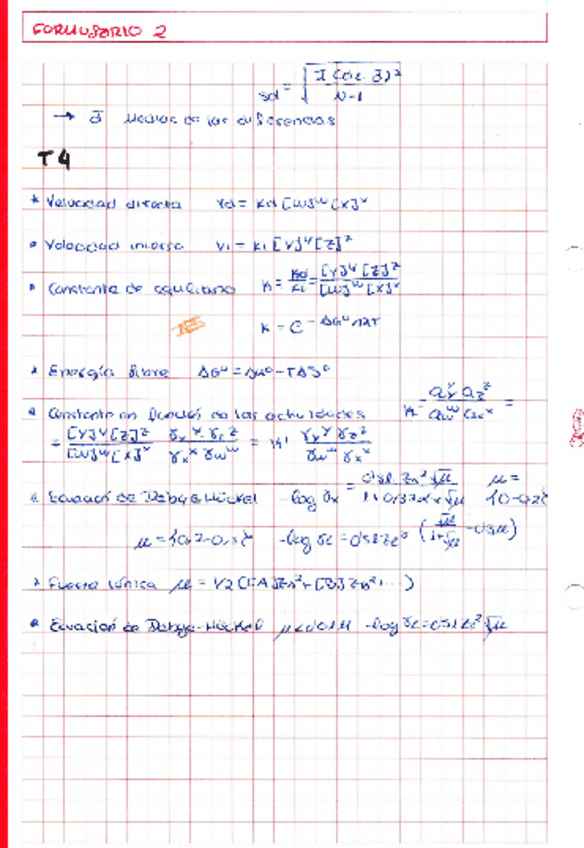 FORMULARIO 2
sd = √ Σ(di - d̄)² / N-1
→ d̄ Medias de las diferencias
T4
* Velocidad directa Vd = Kd [W]ʷ [X]ˣ
* Velocidad inversa Vi = Ki [Y]ʸ [Z]ᶻ
* Constante de equilibrio K = Kd/Ki = [Y]ʸ [Z]ᶻ / [W]ʷ [X]ˣ
K = e^-ΔG⁰/RT
* Energía libre ΔG⁰ = ΔH⁰ - TΔS⁰
* Constante en función de las actividades K = aYʸ aZᶻ / aWʷ aXˣ =
= [Y]ʸ [Z]ᶻ / [W]ʷ [X]ˣ · γYʸ γZᶻ / γXˣ γWʷ = K' γYʸ γZᶻ / γWʷ γXˣ
* Ecuación de Debye Hückel -log γx = 0'51 Zx² √μ / 1+0,33 αx √μ μ =
μ = -log = 0'51 ( √μ / 1+√μ - 0'3μ )
* Fuerza iónica μ = 1/2 ([A] ZA² + [B] ZB² + ...)
* Ecuación de Debye-Hückel μ < 0'01M -log = 0'51 √μ